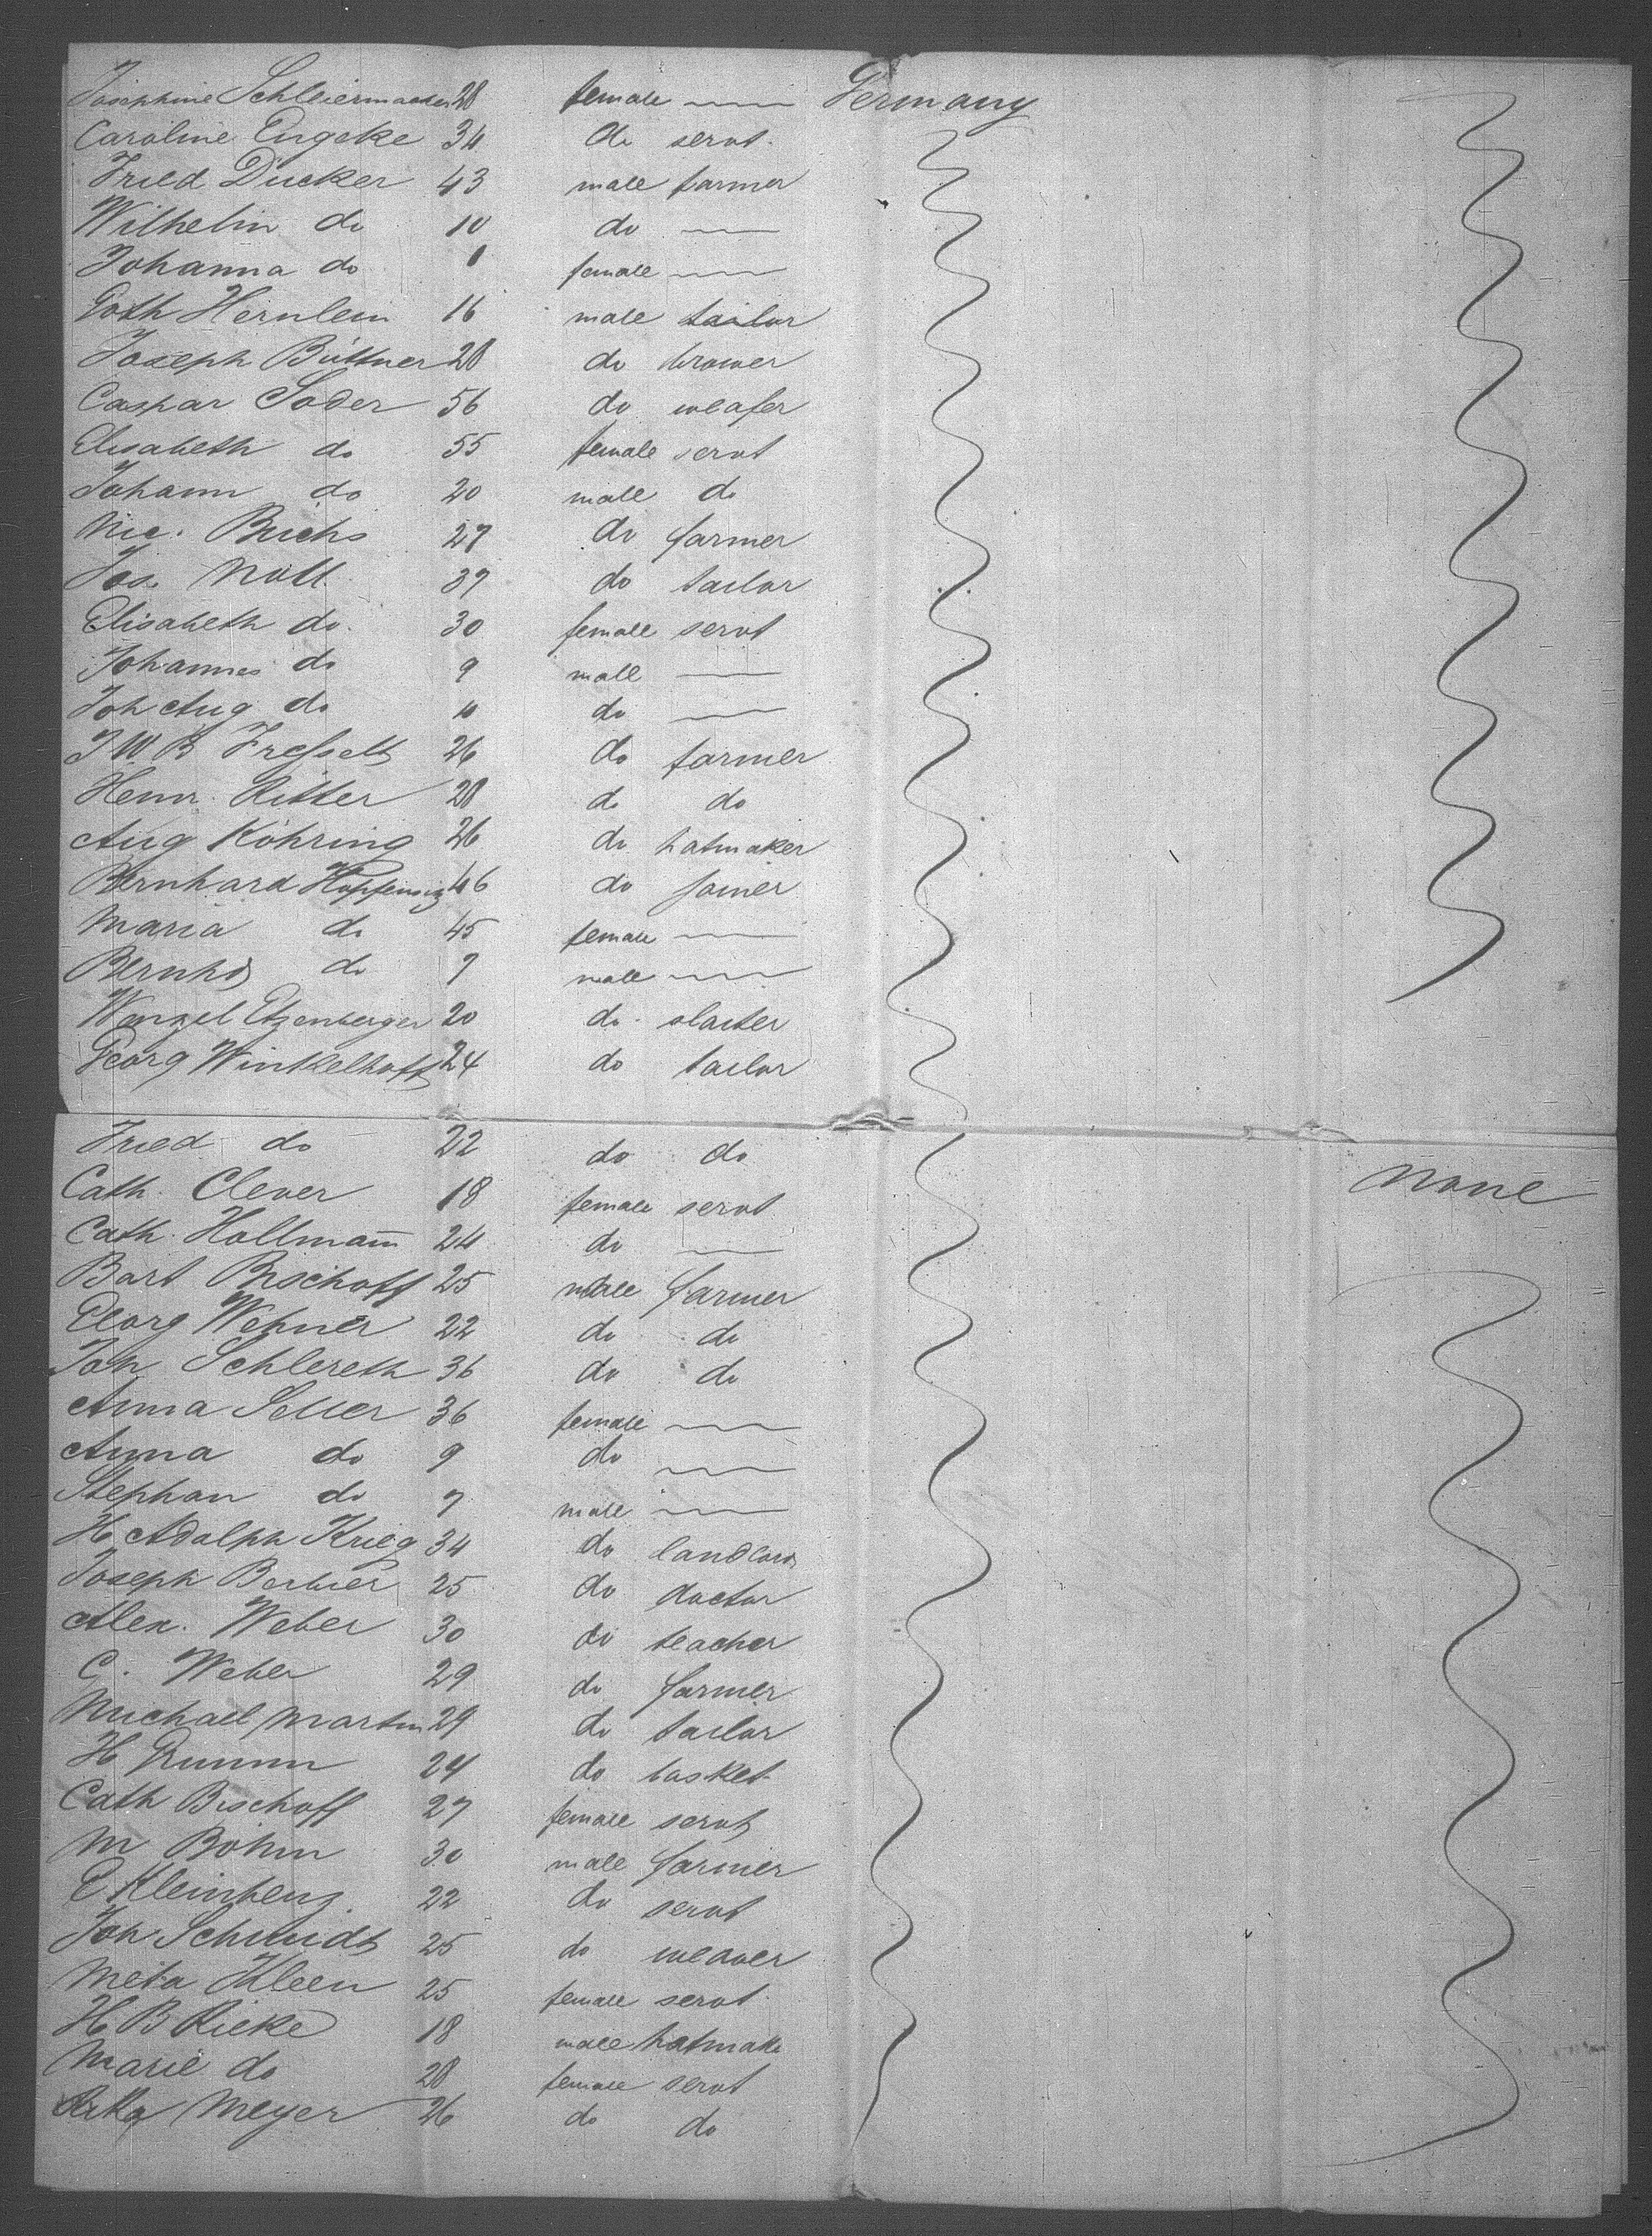 Josephine Schleiermacher 28 female —— Germany
Caroline Engeke 34 do servt.
Fried Ducker 43 male farmer
Wilhelm do 10 do ——
Johanna do female ——
Goth Hernlein 16 male tailor
Joseph Büttner 28 do brower
Caspar Soder 56 do weafer
Elisabeth do 55 female servt
Johann do 20 male do
Nic. Büchs 27 do farmer
Jos. Noll 37 do tailor
Elisabeth do. 30 female servt
Johannes do 9 male ——
Joh Aug do do ——
J W B 26 do farmer
Heinr. Ritter 28 do do
Aug Köhring 26 do hatmaker
Bernhard 46 do joiner
Maria do 45 female ——
Bernhd do 7 male ——
Wenzel Etzenberger 20 do slaiter
Georg Winkelhoff 24 do tailor
Fried do 22 do do
Cath. Clever 18 female servt none
Cath. Hollmann 24 do ——
Bart Bischoff 25 male farmer
Georg Wehner 22 do do
Joh Schlereth 36 do do
Anna Seller 36 female ——
Anna do 9 do ——
Stephan do 7 male ——
H. Adolph Krieg 34 do landlord
Joseph 25 do doctor
Alex. Weber 30 do teacher
C. Weber 29 do farmer
Michael Martin 29 do tailor
H 24 do basket-
Cath Bischoff 27 female servt
M Böhm 30 male farmer
E Kleinhenz 22 do servt
Joh Schmidt 25 do weaver
Meta Kleen 25 female servt.
H B Rieke 18 male hatmake
Marie do 28 female servt
Meyer 26 do do